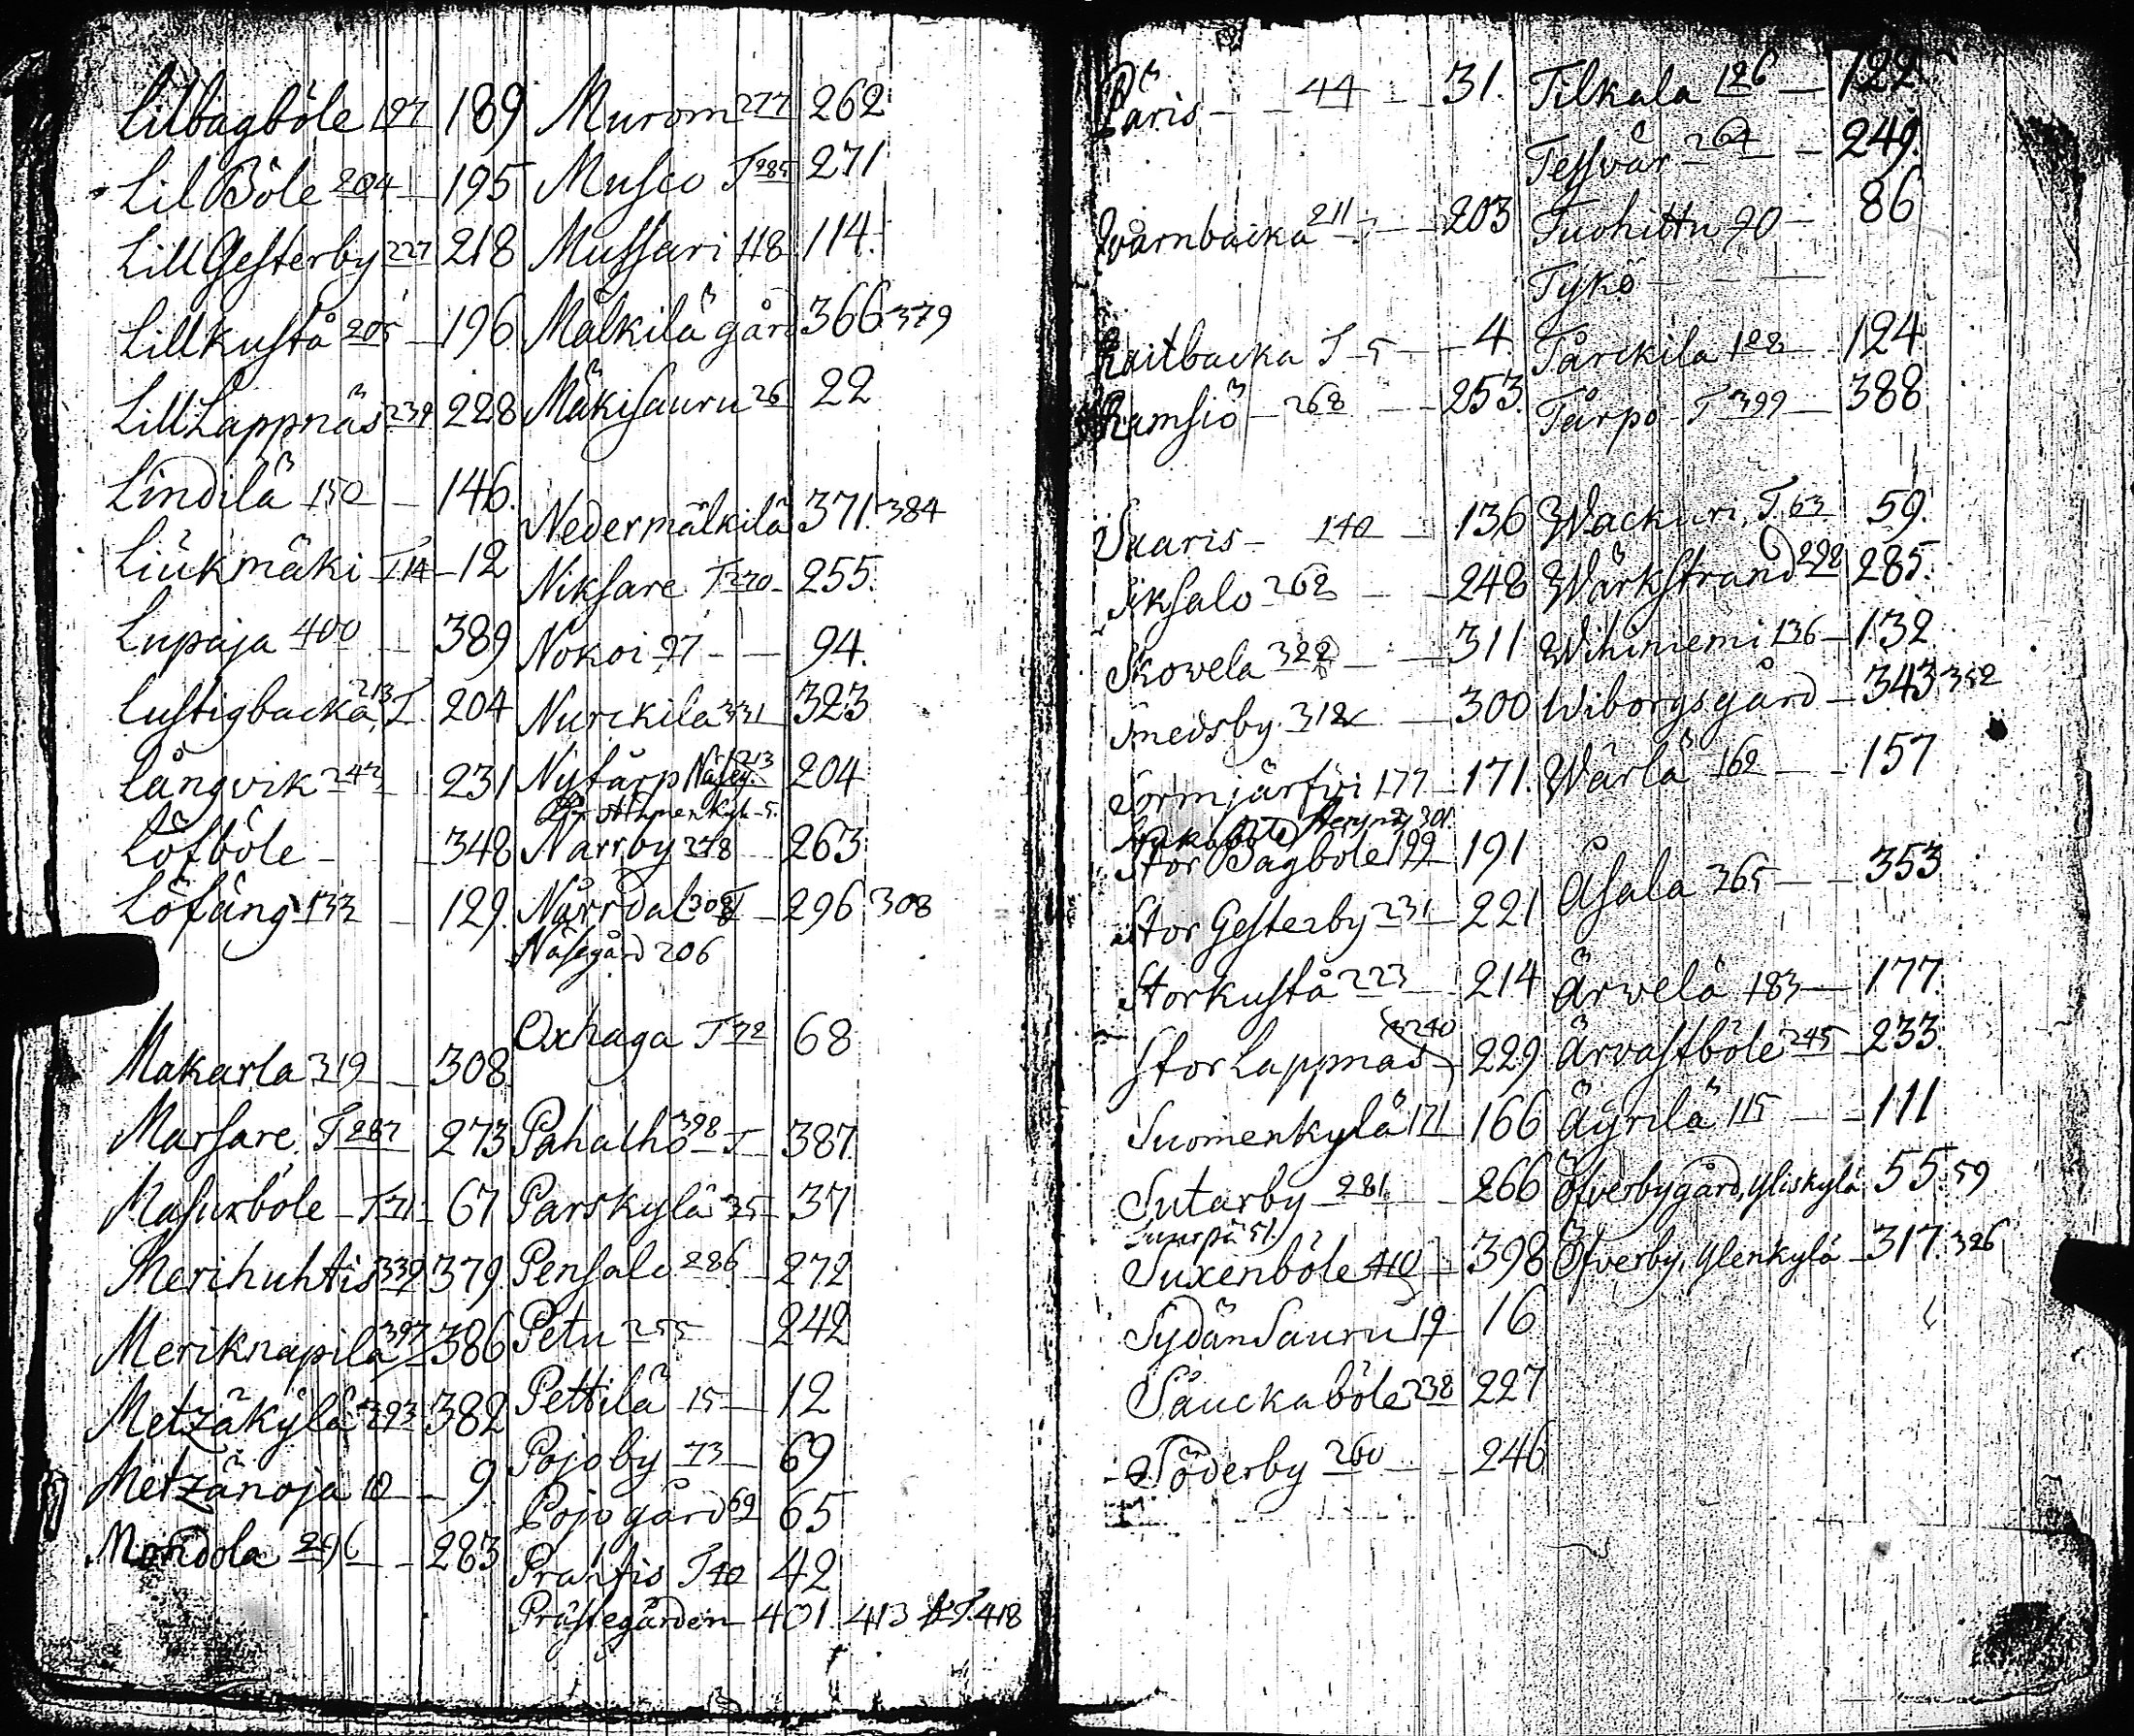 Lilbagböle 197 189
Lil Böle 204 195
Lill Gesterby 227 218
Lillkustå 205 196
Lill Lappnäs 239 228
Lindilä 150 146.
Liükmäki T 14 12
Lupaja 400 389
Lustigbacka 213 T. 204
Långvik 242 231
Löfböle 348
Löfäng 133 129.
Makarla 319 308
Marsare T 287 273
Masurböle T 71 67
Merihuhtis 339 379
Meriknapila 397 386
Metzäkylä 393 382
Metzänoja 10 9
Mondola 296 283
Murom 277 262
Musco T 285 271
Mussari 118 114.
Mälkilä gård 366. 379
Mäkisauru 26 22
Nedermälkilä 371. 384
Niksare T 270 255.
Nokoi 97 94.
Nurckila 331 323
Nytårp Näseg. 213 204
Närrby 278 263
Närrdal 308 T 296 308
Näsegård 206
Oxhaga T 72 68
Pahalho 398 T 387
Parskylä 35 37
Pensalo 286 272
Petu 255 242
Pettilä 15 12
Pojoby 73 69
Pojo gård 69 65
Prahtis T 40 42
Prästegården 401. 413 T. 418
Päris 44 31.
Qvarnbacka 211 203
Raitbacka T 5 4.
Ramsiö 268 253.
Saaris 140 136
Siksalo 262 248
Skowela 322 311
Smedsby 312 300
Sormjärfvi 177 171.
Stor Bagböle 199 191
Stor Gesterby 231 221
Storkustå 223 214
Stor Lappnäs 240 229
Suomenkylä 171 166
Sutarby 281 266
Suurpä 51.
Suxenböle 410 398
Sydänsauru 19 16
Säuckaböle 238 227
Söderby 260 246
Tilkala 126 122.
Tessvär 264 249.
Tuohittu 90 86
Tykö
Tårckila 128 124
Tårpo T 399 388
Wackuri T. 63 59.
Wärkstrand 298 285.
Wihiniemi 136 132
Wiborgsgård 343 352
Wärlä 162 157
Åsala 365 353
Ärwelä 183 177.
Ärvastböle 245 233.
Äyrilä 115 111
Öfverbygård, Yliskylä 55. 59
Öfverby, Ylenkylä 317. 326